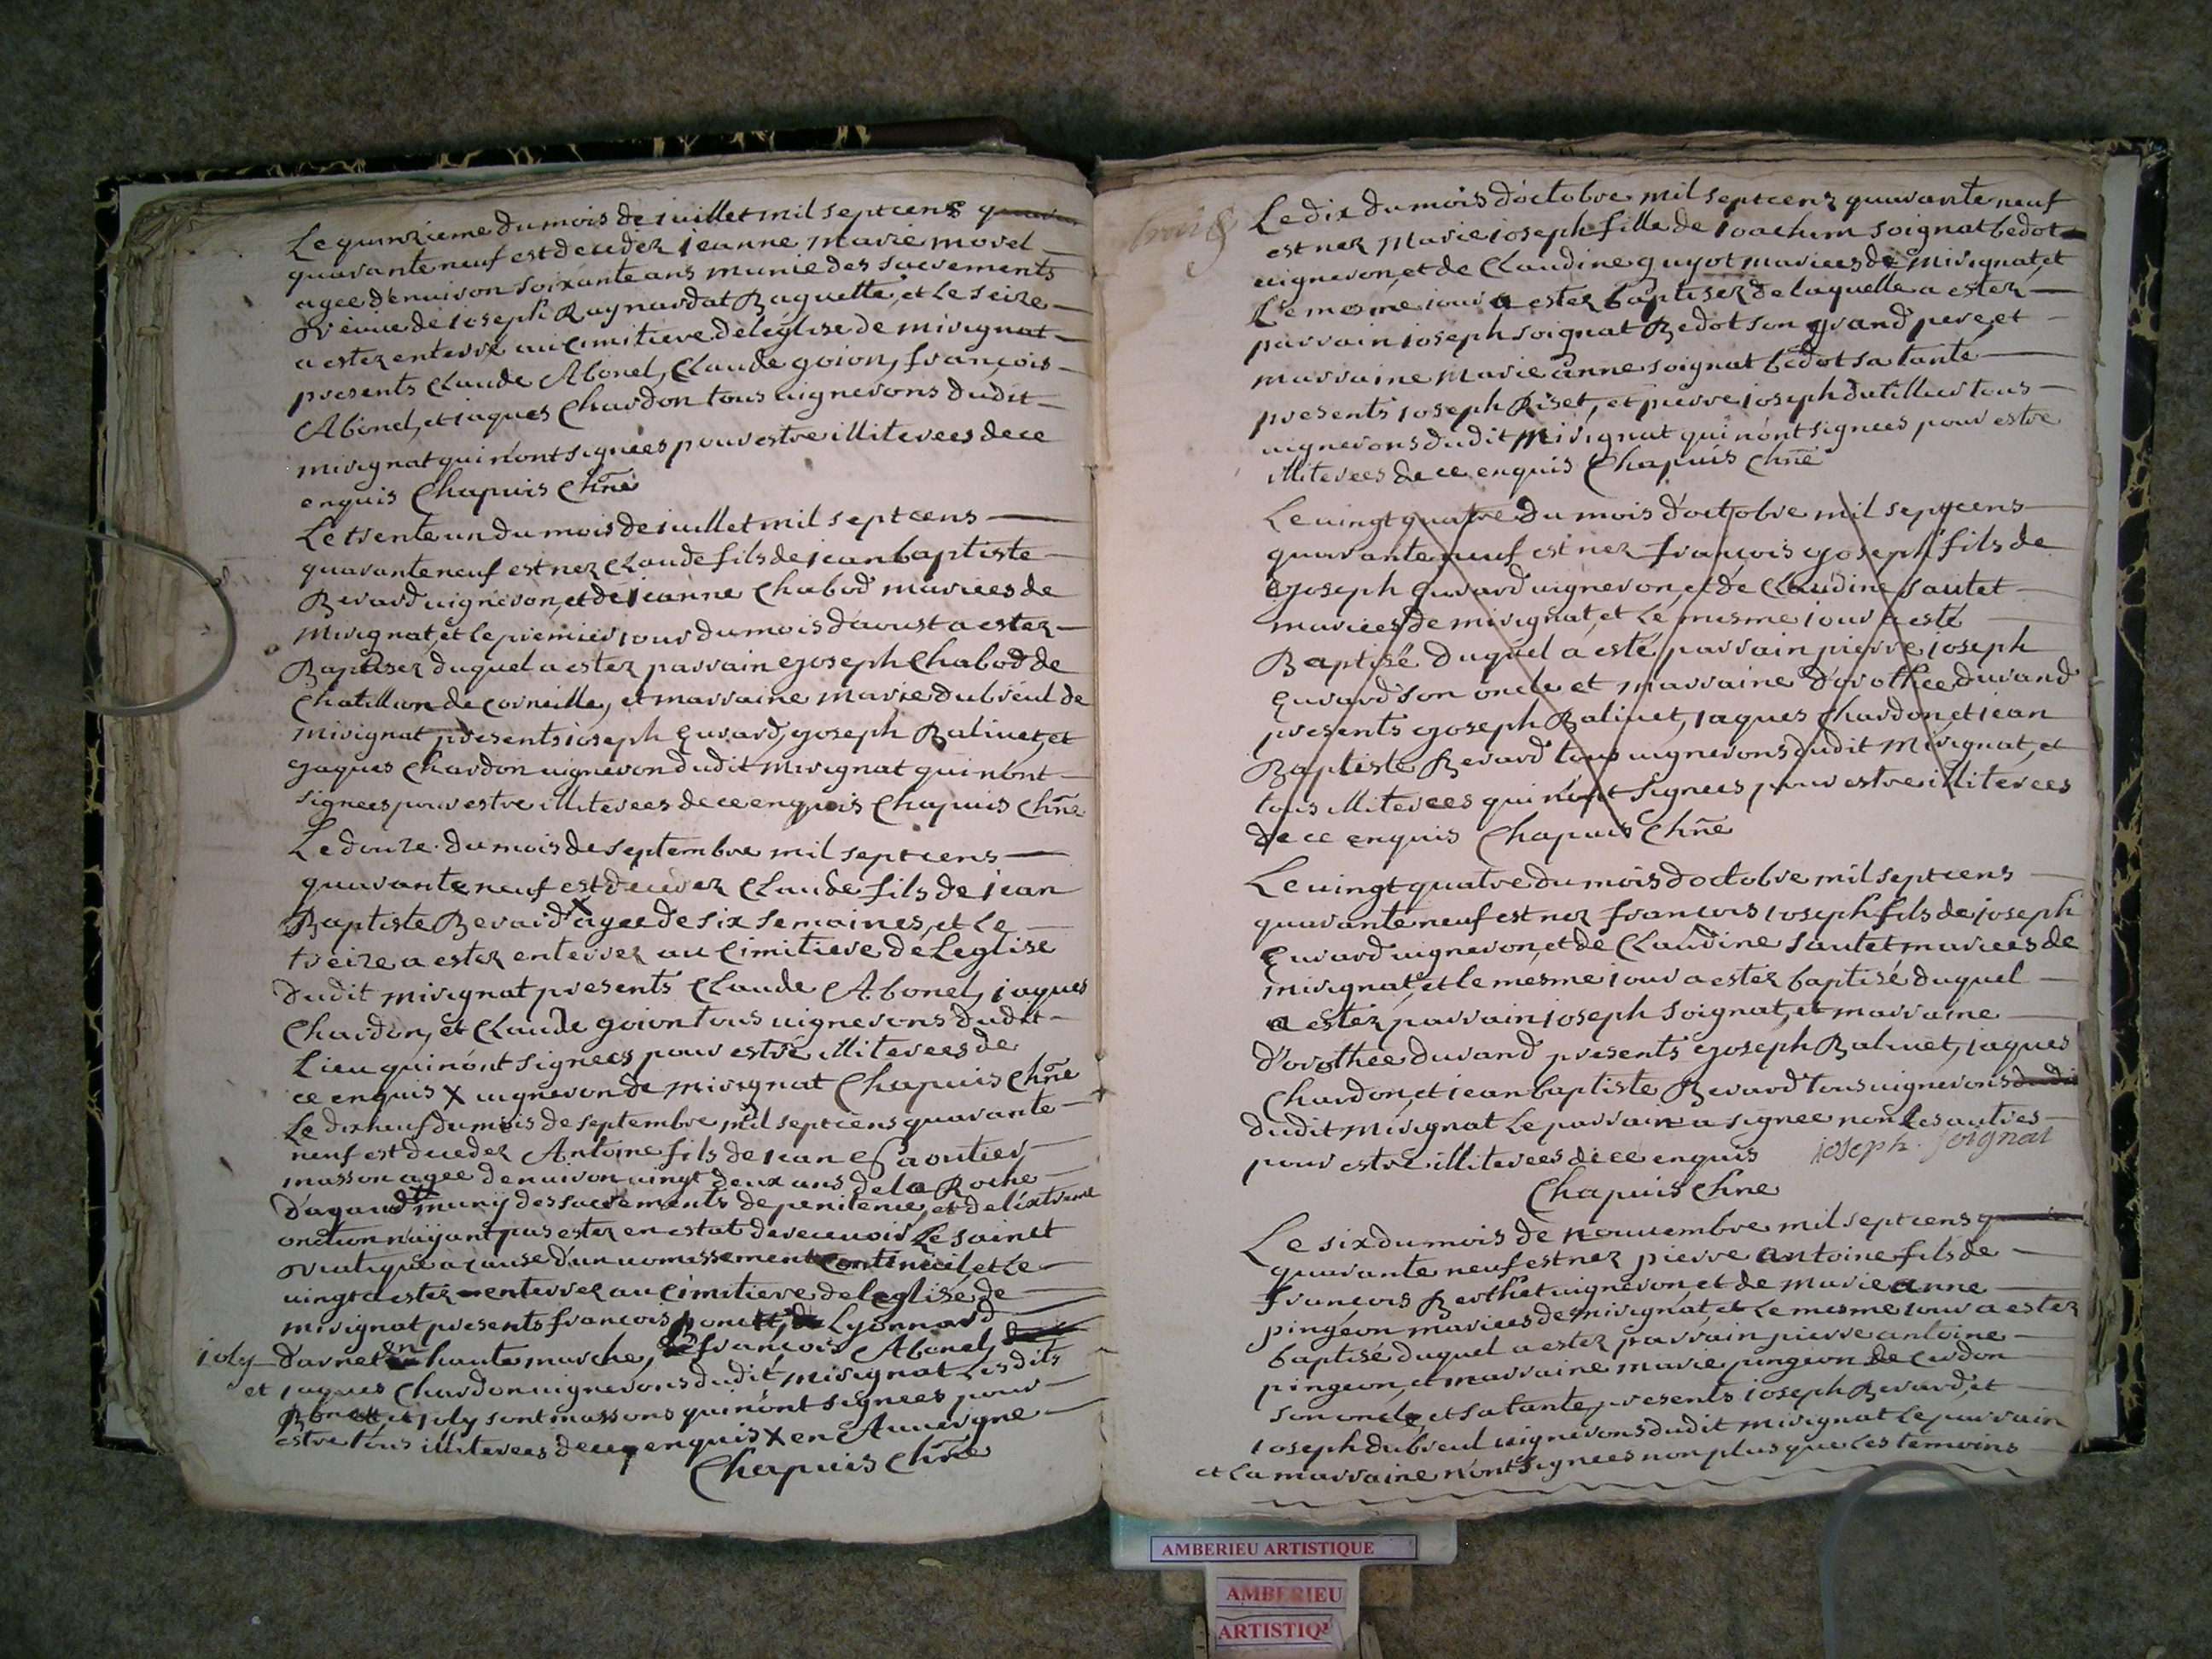 Le quinzieme du mois de iuillet mil sept cens
quarante neuf est decedez ieanne marie morel
agee d'enuiron soixante ans munie des sacrements
veuue de ioseph Raynardat Raguette, et le seize
a estez enterré au cimitiere de léglise de mirignat
presents Claude Abonel, Claude goion, françois
Abonel, et iaques Chardon tous uignerons dudit
mirignat qui n'ont signees pour estre illiterees de ce
enquis Chapuis Chne
Le trente un du mois de iuillet mil sept cens
quarante neuf est nez Claude fils de iean baptiste
Berard uigneron, et de ieanne Chabod mariees de
mirignat, et le premier iour du mois d'aoust a estez
Baptisez duquel a estez parrain ejoseph Chabod de
Chatillion de Corneille, et marraine marie dubreul de
mirignat presents ioseph Euvard, ejoseph Balivet, et
ejaques Chardon uigneron dudit mirignat qui n'ont
signees pour estre illiterees de ce enquis Chapuis Chne
Le douze du mois de septembre mil sept cens
quarante neuf est decedez Claude fils de iean
Baptiste Berard X agee de six semaines, et le
treize a estez enterrez au Cimitiere de Leglise
dudit mirignat presents Claude Abonel, iaques
Chardon, et Claude goion tous uignerons dudit
Lieu qui n'ont signees pour estre illiterees de
ce enquis X uigneron de mirignat Chapuis Chne
Le dixneuf du mois de septembre mil sept cens quarante
neuf est decedez Antoine fils de iean
masson agee denuiron uingt deux ans de la Roche
d'agaud muny des sacrements de penitence, et de l'extreme
onction n'ayant pas estez en estat de receuoir Le sainct
viatique a cause d'un uomissement continuel, et le
uingt a estez enterrez au Cimitiere de leglise de
mirignat presents françois Lyonnard
ioly d'arnet en haute marche, françois Abonel,
et iaques Chardon uignerons dudit mirignat Lesdits
et ioly sont massons qui n'ont signees pour
estre tous illiterees de ce enquis X en Auuergne
Chapuis Chne
Le dix du mois d'octobre mil sept cens quarante neuf
est nez Marie ioseph fille de ioachim soignat bedot
uigneron, et de Claudine guyot mariees de mirignat, et
Le mesme iour a estez baptisez de laquelle a estez
parrain ioseph soignat Bedot son grand pere, et
marraine Marie anne soignat bedot sa tante
presents ioseph Riset, et pierre ioseph dutillier tous
uignerons dudit Mirignat qui n'ont signees pour estre
illiterees de ce enquis Chapuis Chne
Le uingt quatre du mois d'octobre mil sept cens
quarante neuf est nez françois ejoseph fils de
ejoseph Euvard uigneron, et de Claudine sautet
mariees de mirignat, et Le mesme iour a esté
Baptisé duquel a esté parrain pierre ioseph
Euvard son oncle et marraine d'orothee durand
presents ejoseph Balivet, iaques Chardon, et iean
Baptiste Berard tous uignerons dudit Mirignat, et
tous illiterees qui n'ont signees pour estre illiterees
de ce enquis Chapuis Chne
Le uingt quatre du mois doctobre mil sept cens
quarante neuf est nez francois ioseph fils de ioseph
Euvard uigneron, et de Claudine sautet mariees de
mirignat, et le mesme iour a estez baptisé duquel
a estez parrain ioseph soignat, et marraine
d'orothee durand presents ejoseph Balivet, iaques
Chardon, et iean baptiste Berard tous uignerons dudit
dudit Mirignat Le parrain a signee non Les autres
pour estre illiterees de ce enquis ioseph soignat
Chapuis Chne
Le six du mois de nouuembre mil sept cens
quarante neuf est nez pierre antoine fils de
françois Berthet uigneron, et de marie anne
pingeon mariees de mirignat, et Le mesme iour a estez
baptisé duquel a estez parrain pierre antoine
pingeon, et marraine marie pingeon de Cerdon
son oncle, et sa tante, presents ioseph Berard, et
ioseph dubreul uignerons dudit mirignat Le parrain
et La marraine n'ont signees non plus que Les temoins
AMBERIEU ARTISTIQUE
AMBERIEU
ARTISTIQU